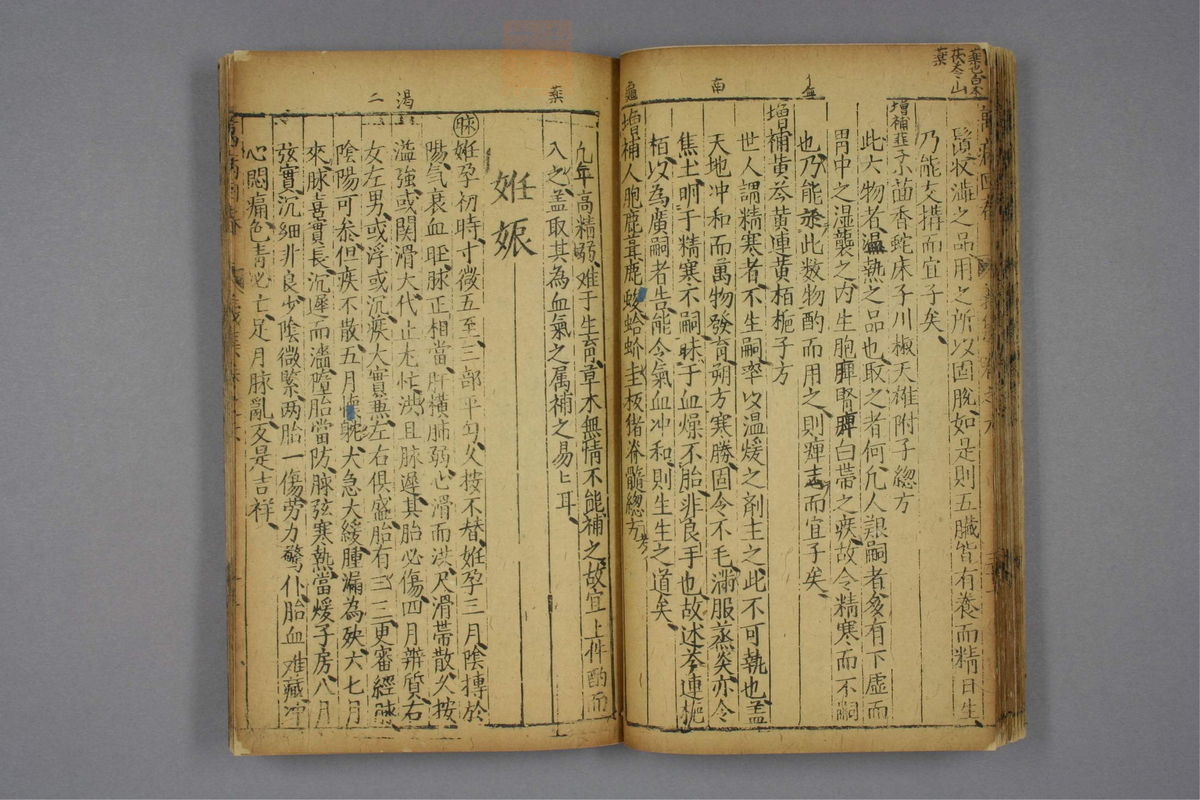 蛤
龜
南
𠂉無
藥也石不
茯苓山
藥
髮牧濇之品用之所以固脫如是則五臟皆有養而精日生
乃能交搆而宜子矣
增補韮子茴香蛇床子川椒天雄附子總方
此大物者溫執之品也取之者何凡人艱嗣者多有下虛而
胃中之濕襲之內生胞痺腎痺白帶之疾故令精寒而不嗣
也乃能此数物酌而用之則痺去而宜子矣
增補黃芩黃連黃栢梔子方
世人謂精寒者不生嗣率以溫煖之剤主之此不可執也盖
天地冲和而萬物發育朔方寒勝固令不毛滿服蒸炎亦令
焦土明于精寒不嗣昧于血燥不胎非良手也故述芩連梔
栢以為廣嗣者告能令氣血冲和則生生之道矣
增補人胞鹿茸鹿蛤蚧圭板猪脊髓總方
藥
渴
二
凡年高精弱难于生育草木無情不能補之故宜上件酌而
入之盖取其為血氣之属補之易〻耳
姙娠
脉姙孕初時寸微五至三部平勻久按不替姙孕三月陰摶於
陽氣衰血旺脉正相當肝橫肺弱心滑而洪尺滑帶散久按
溢強或関滑大代止尤忙渴且脉遲其胎必傷四月辨質右
女左男或浮或沉疾大實兼左右俱盛胎有三三更審經脉
陰陽可叅但疾不散五月懷躭犬急大緩腫漏為殃六七月
來脉喜實長沉遲而濇墮胎當防脉弦寒熱當煖子房八月
弦實沉細非良少陰微緊两胎一傷劳力驚仆胎血难藏冲
心悶痛色青必亡足月脉亂反是吉祥